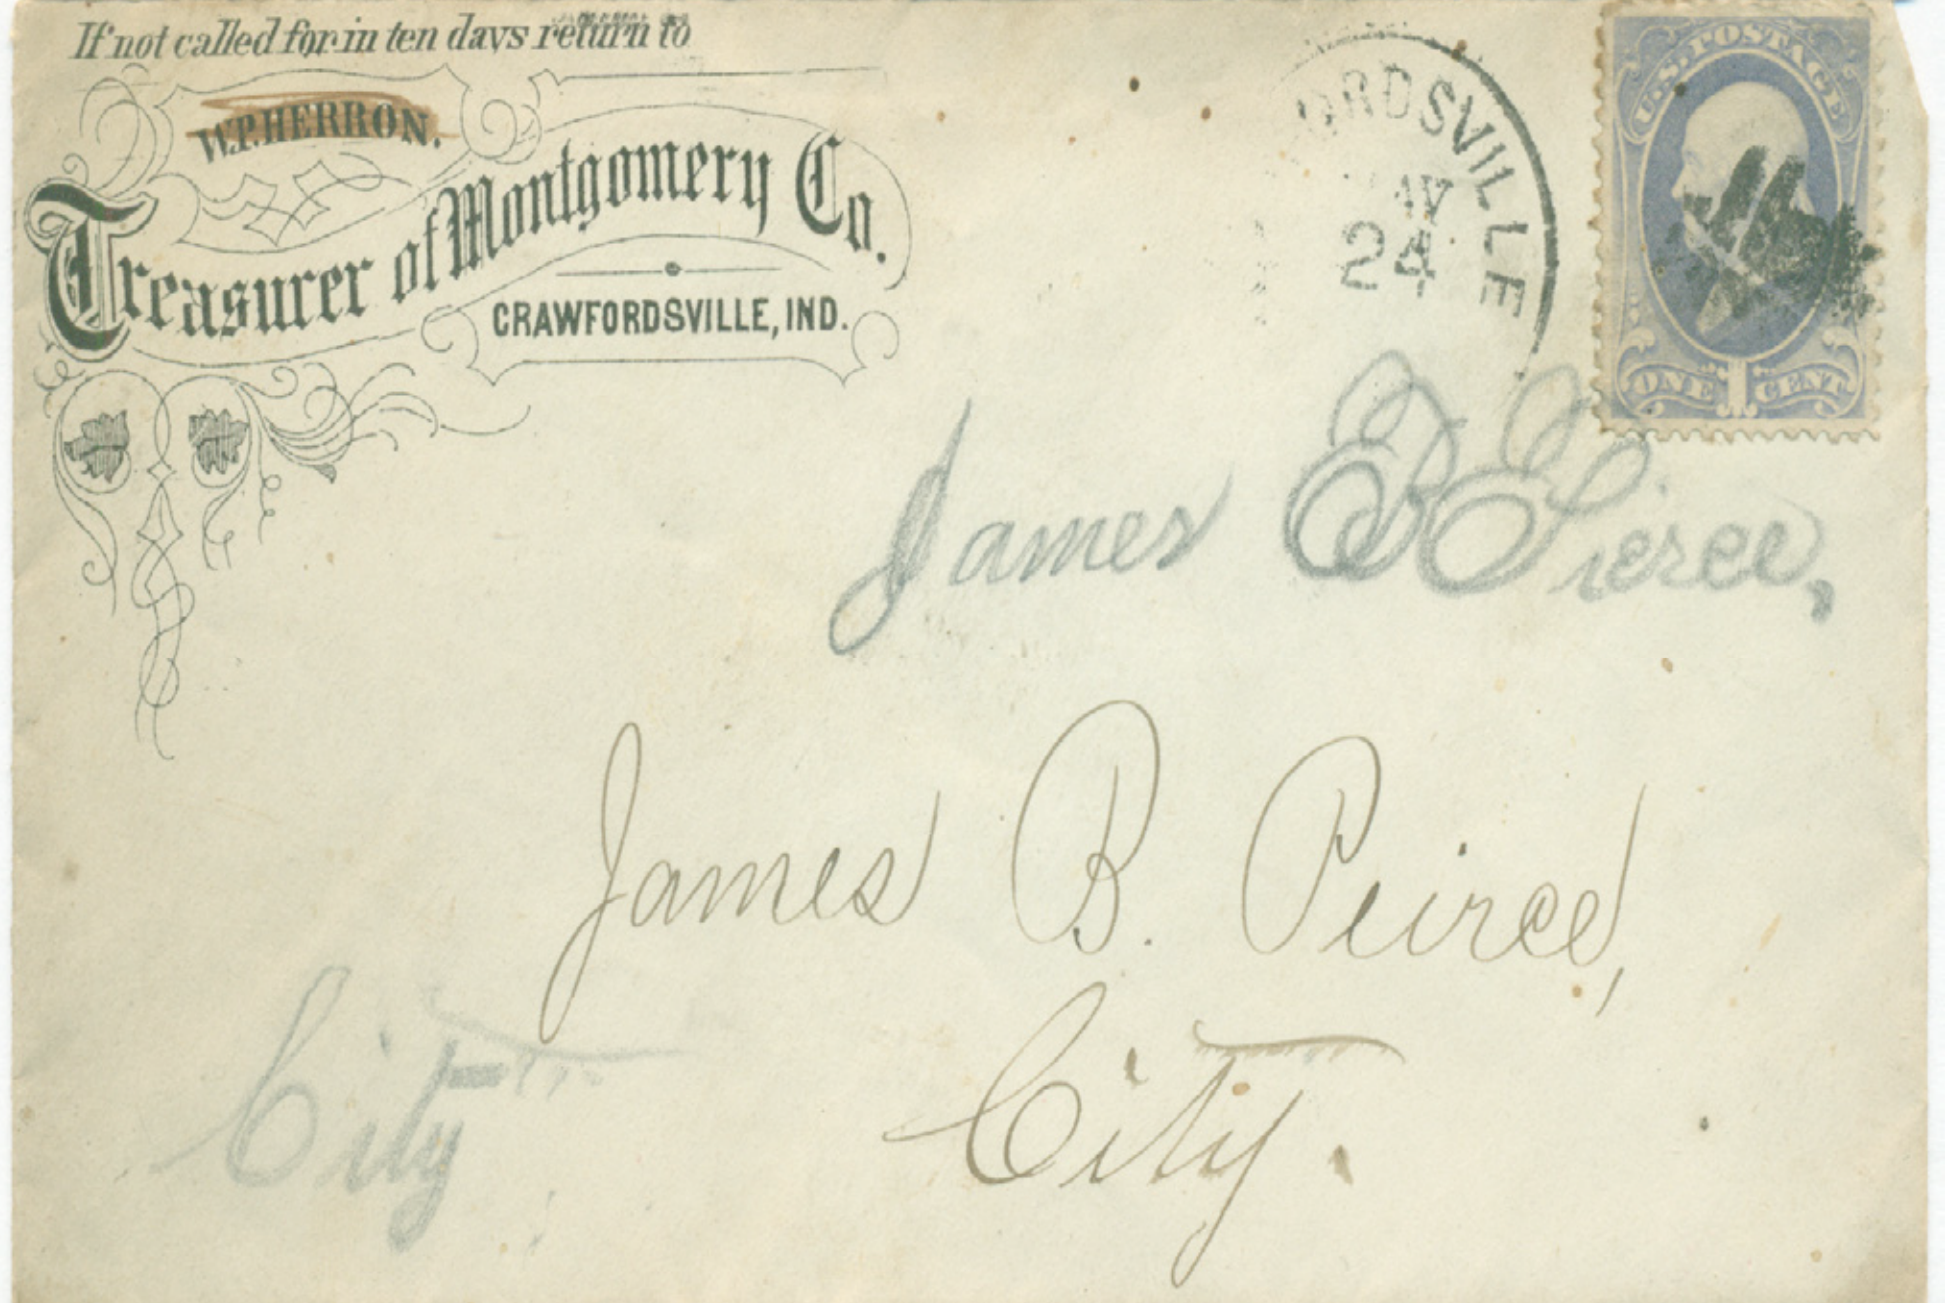 If not called for in ten days return to
W.P. HERRON.
Treasurer of Montgomery Co.
CRAWFORDSVILLE, IND.
ORDSVILLE
24
U.S. POSTAGE
ONE 1 CENT
James B Pierce,
James B. Peirce,
City
City.